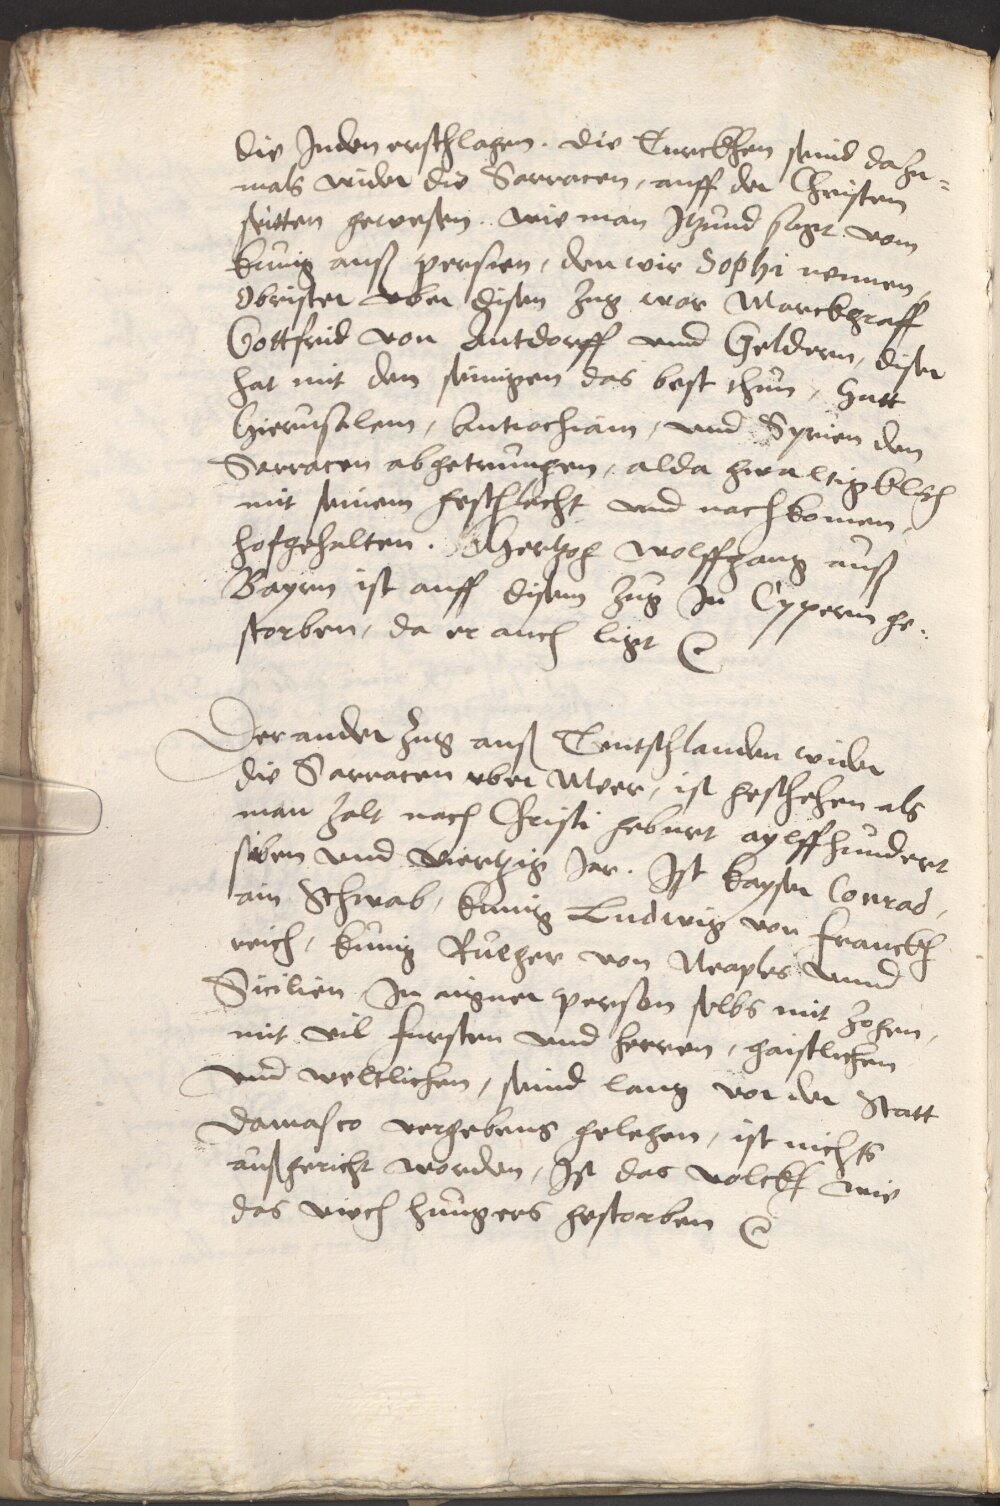 die Juden erschlagen. die Turckhen seind dazu-
mals wider die Sarracen, auff der Christen
seitten gewesen. wie man Itzund sagt vom
kunig auß persien, den wir Sophi nennen,
Obrister uber disen zug war Marckgraff
Gottfrid von Antdorff und Geldern, diser
hat mit den seinigen das best thun, Hatt
Hierusalem, Antiochiam, und Syrien den
Sarracen abgetrungen, alda gwaltigklich
mit seinem geschlecht und nachkomen,
hofgehalten. Hertzog Wolffgang auß
Bayrn ist auff disem zug In Cypern ge-
storben, da er auch ligt
Der ander zug auß Teutschlanden wider
die Sarracen uber Meer, ist geschehen als
man zalt nach Christi geburt aylffhundert
siben und viertzig Jar. Ist kayser Conrad,
ain Schwab, kunig Ludwig von franckh
reich, kunig Rutger von Neaples unnd
Sicilien In aigner person selbs mit zogen,
mit vil fursten und herren, gaistlichen
und weltlichen, seind lang vor der Statt
Damasco vergebens gelegen, ist nichts
außgericht worden, Ist das volckh wie
das viech hungers gestorben